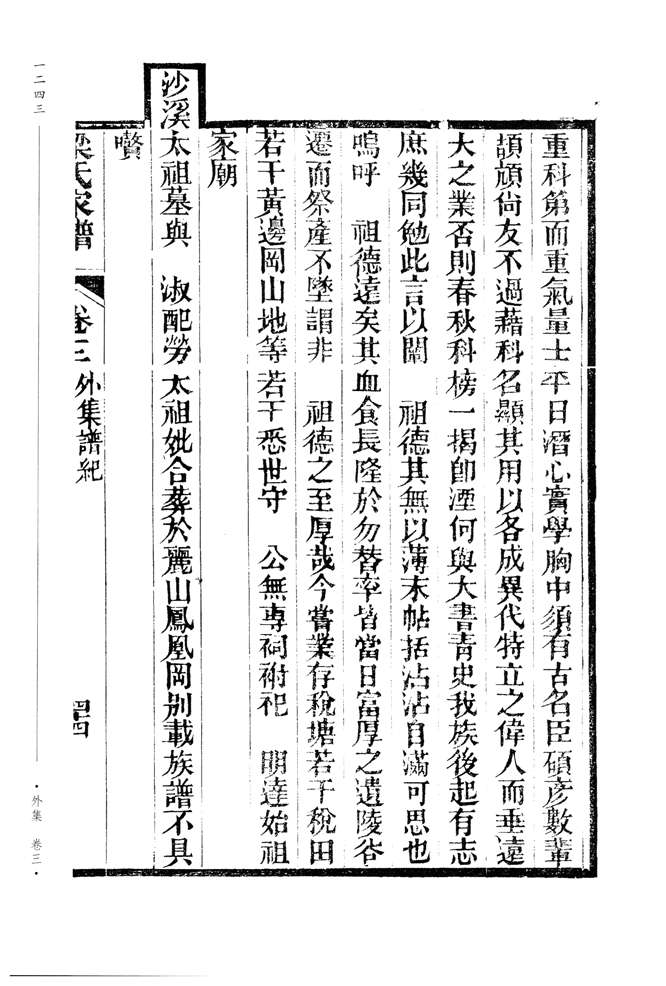 重科第而重氣量士平日潛心實學胸中須有古名臣碩彥數輩
頡頏尙友不過藉科名顯其用以各成異代特立之偉人而垂遠
大之業否則春秋科榜一揭卽湮何與大書靑史我族後起有志
庶幾同勉此言以闡　祖德其無以薄末帖括沾沾自滿可思也
嗚呼　祖德遠矣其血食長隆於勿替率皆當日富厚之遺陵谷
遷而祭產不墜謂非　祖德之至厚哉今嘗業存稅塘若干稅田
若干黃邊岡山地等若干悉世守　公無專祠祔祀　明達始祖
家廟
沙溪太祖墓與　淑配勞太祖妣合葬於麗山鳳凰岡別載族譜不具
贅
梁氏家譜　卷三　外集譜紀　四
一二四三
·外集　卷三·